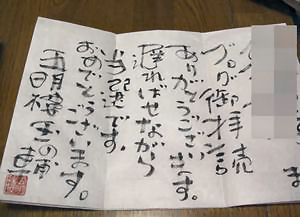 ブログ御拝読
ありがとうございます。
遅ればせながら
当選です。
おめでとうございます。
五明樓玉の輔